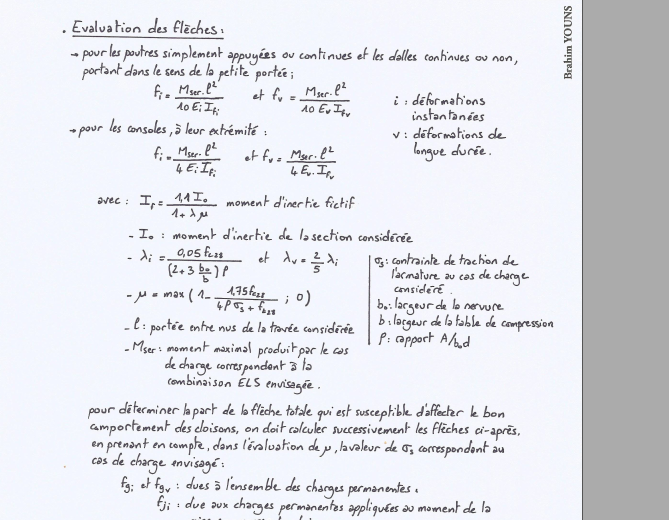 . Evaluation des flèches:
→ pour les poutres simplement appuyées ou continues et les dalles continues ou non,
portant dans le sens de la petite portée;
fi = Mser.l² / 10 Ei Ifi et fv = Mser.l² / 10 Ev Ifv
i : déformations
instantanées
→ pour les consoles, à leur extrémité :
v : déformations de
longue durée.
fi = Mser.l² / 4 Ei Ifi et fv = Mser.l² / 4 Ev.Ifv
avec : If = 1,1 Io / 1+λμ moment d'inertie fictif
- Io : moment d'inertie de la section considérée
- λi = 0,05 ft28 / (2+3 bo/b) ρ et λv = 2/5 λi
- μ = max (1- 1,75 ft28 / 4ρ σs + ft28 ; 0)
- l : portée entre nus de la travée considérée
- Mser : moment maximal produit par le cas
de charge correspondant à la
combinaison ELS envisagée.
σs : contrainte de traction de
l'armature au cas de charge
considéré.
bo : largeur de la nervure
b : largeur de la table de compression
ρ : rapport A/bod
pour déterminer la part de la flèche totale qui est susceptible d'affecter le bon
comportement des cloisons, on doit calculer successivement les flèches ci-après,
en prenant en compte, dans l'évaluation de μ, la valeur de σs correspondant au
cas de charge envisagé :
fgi et fgv : dues à l'ensemble des charges permanentes.
fji : due aux charges permanentes appliquées au moment de la
Brahim YOUNS